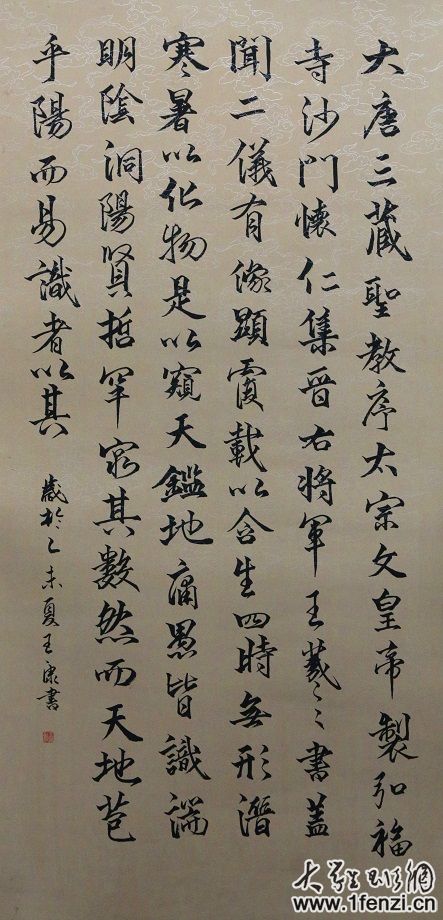 大唐三藏聖教序太宗文皇帝製弘福
寺沙門懷仁集晉右將軍王羲之書蓋
聞二儀有像顯覆載以含生四時無形潛
寒暑以化物是以窺天鑑地庸愚皆識端
明陰洞陽賢哲罕窮其數然而天地苞
乎陽而易識者以其
歲於乙未夏王康書
大學生班網
www.1fenzi.cn